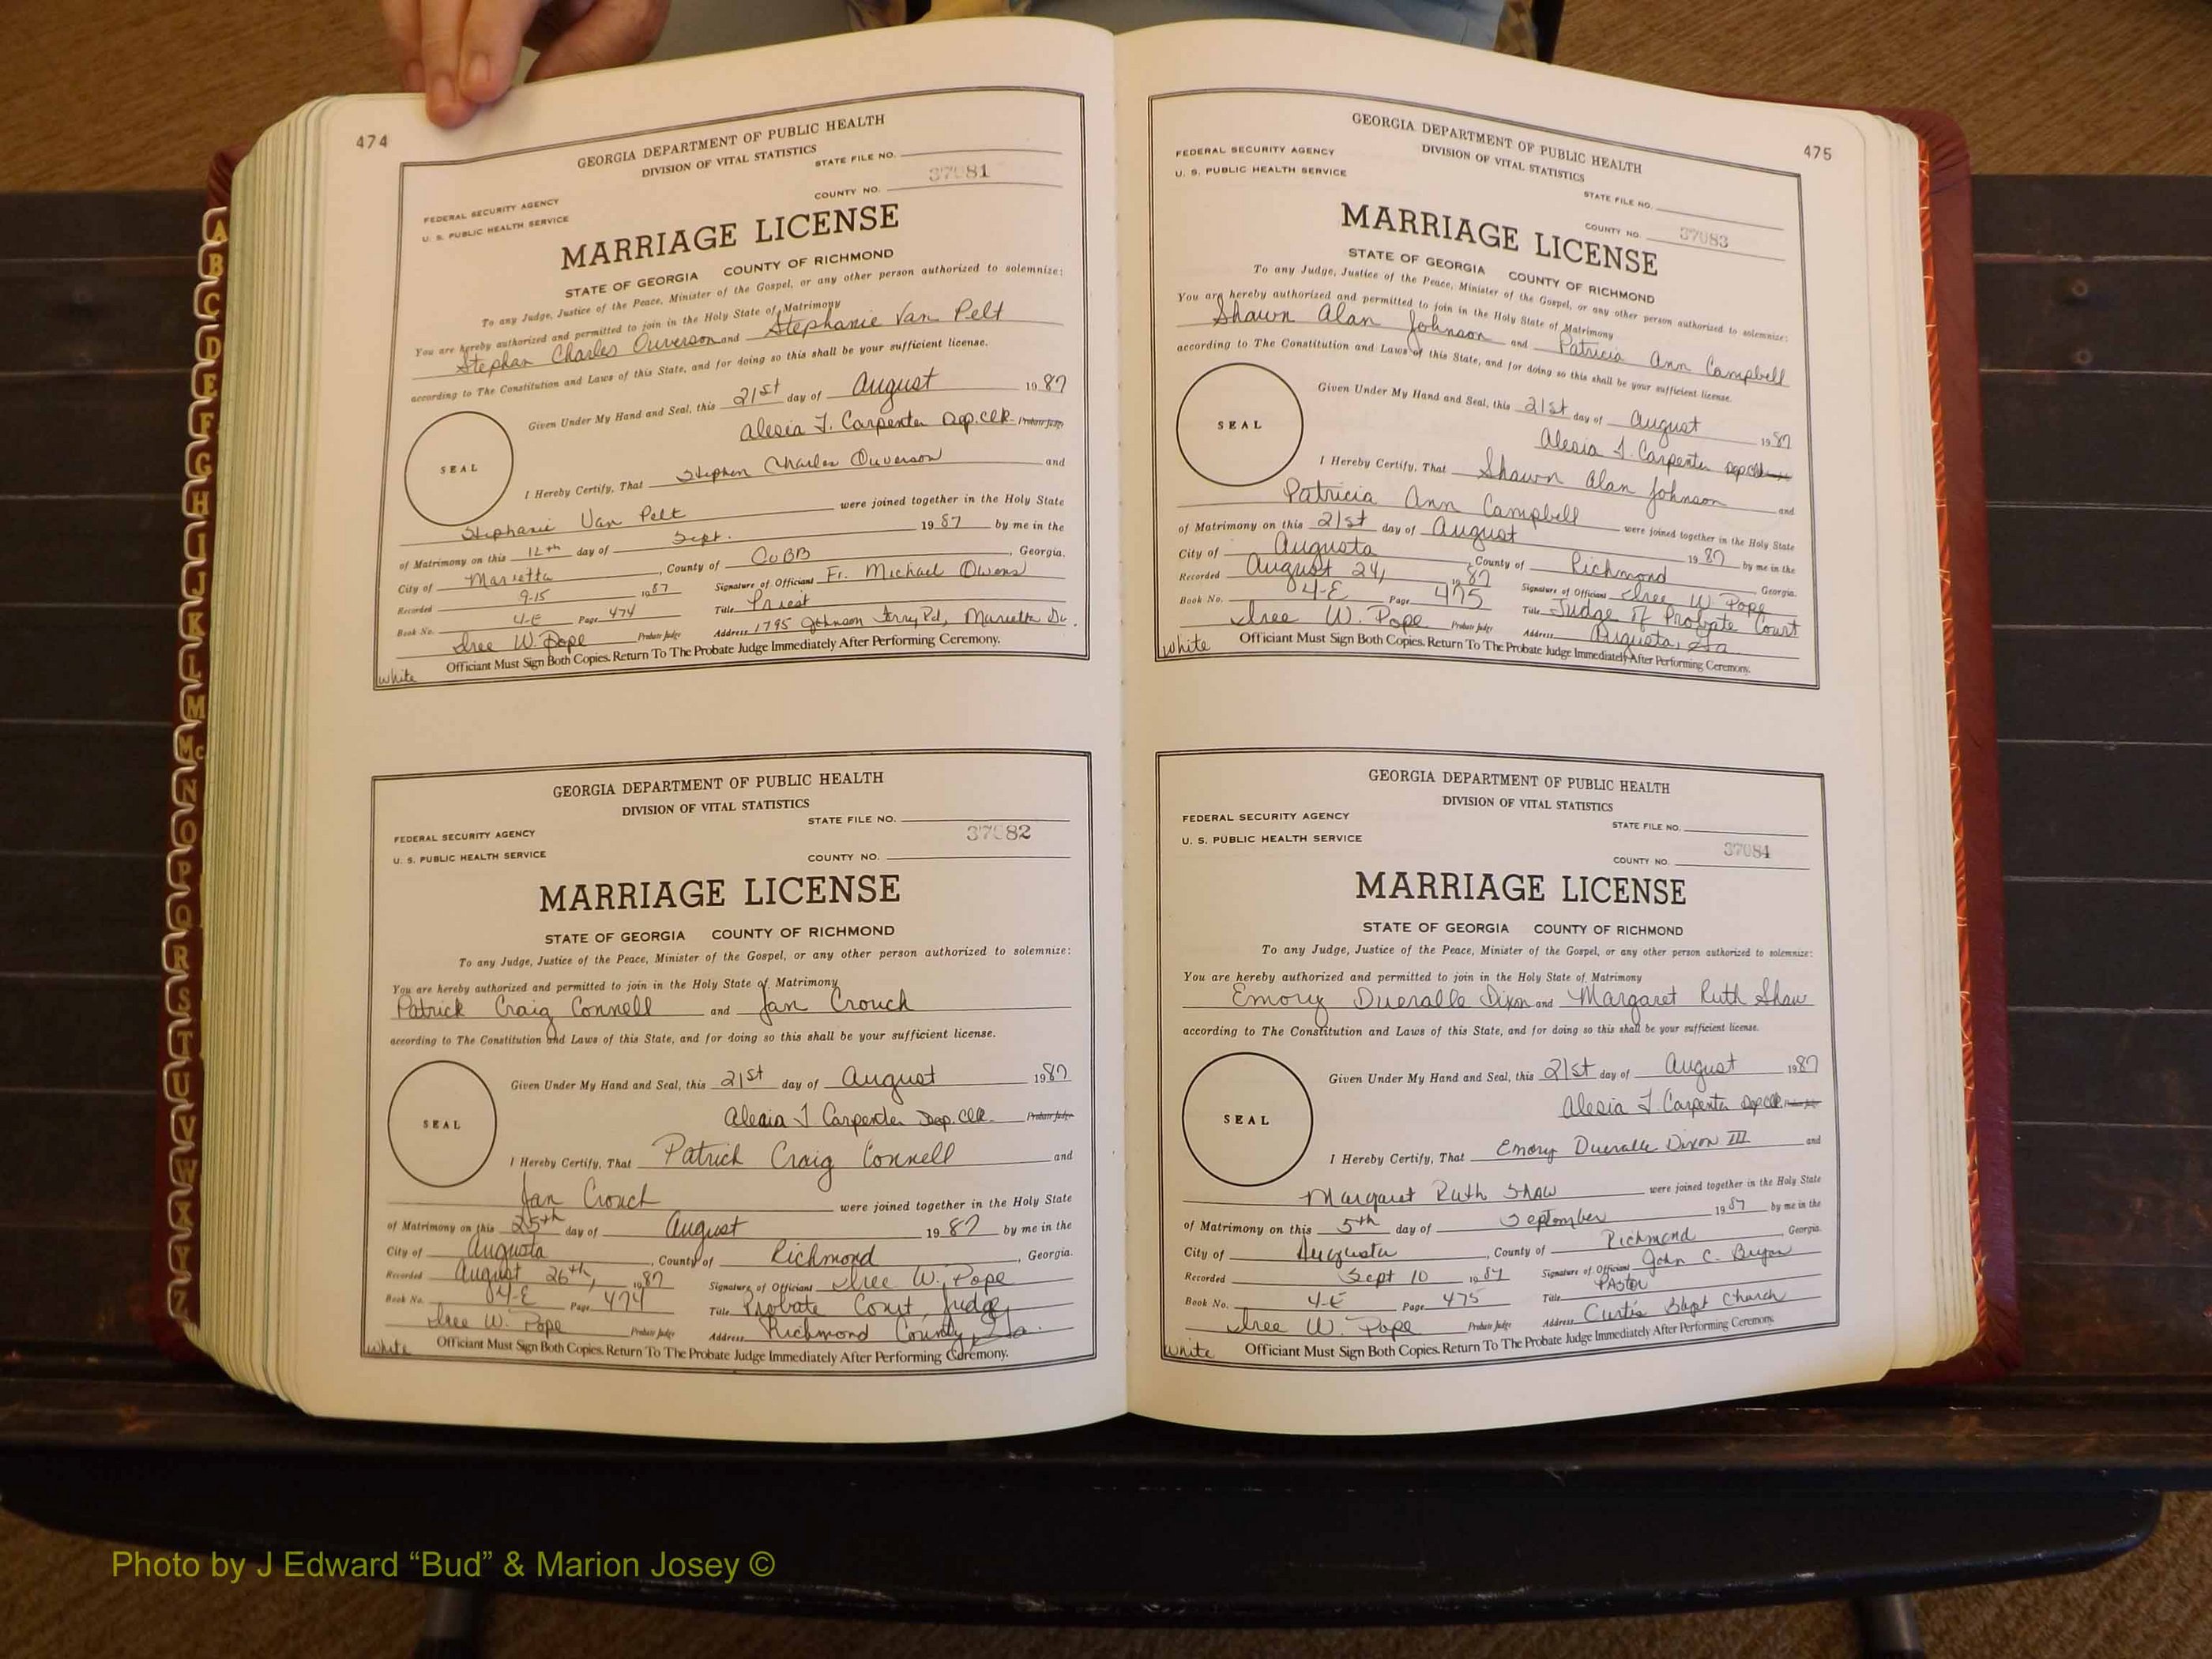 474
GEORGIA DEPARTMENT OF PUBLIC HEALTH
DIVISION OF VITAL STATISTICS
STATE FILE NO.
37081
COUNTY NO.
FEDERAL SECURITY AGENCY
U. S. PUBLIC HEALTH SERVICE
MARRIAGE LICENSE
STATE OF GEORGIA COUNTY OF RICHMOND
To any Judge, Justice of the Peace, Minister of the Gospel, or any other person authorized to solemnize:
You are hereby authorized and permitted to join in the Holy State of Matrimony
Stephan Charles Ouverson and Stephanie Van Pelt
according to The Constitution and Laws of this State, and for doing so this shall be your sufficient license.
Given Under My Hand and Seal, this 21st day of August 1987
Alesia J. Carpenter Dep. Clk. Probate Judge
SEAL
I Hereby Certify, That Stephen Charles Ouverson and
Stephanie Van Pelt were joined together in the Holy State
of Matrimony on this 12th day of Sept. 1987 by me in the
City of Marietta, County of COBB, Georgia.
Recorded 9-15 1987 Signature of Officiant Fr. Michael Owens
Book No. 4-E Page 474 Title Priest
Iree W. Pope Probate Judge Address 1795 Johnson Ferry Rd, Marietta Ga.
Officiant Must Sign Both Copies. Return To The Probate Judge Immediately After Performing Ceremony.
White
GEORGIA DEPARTMENT OF PUBLIC HEALTH
DIVISION OF VITAL STATISTICS
STATE FILE NO.
37082
FEDERAL SECURITY AGENCY
U. S. PUBLIC HEALTH SERVICE
COUNTY NO.
MARRIAGE LICENSE
STATE OF GEORGIA COUNTY OF RICHMOND
To any Judge, Justice of the Peace, Minister of the Gospel, or any other person authorized to solemnize:
You are hereby authorized and permitted to join in the Holy State of Matrimony
Patrick Craig Connell and Jan Crouch
according to The Constitution and Laws of this State, and for doing so this shall be your sufficient license.
Given Under My Hand and Seal, this 21st day of August 1987
Alesia J Carpenter Dep. Clk. Probate Judge
SEAL
I Hereby Certify, That Patrick Craig Connell and
Jan Crouch were joined together in the Holy State
of Matrimony on this 25th day of August 1987 by me in the
City of Augusta, County of Richmond, Georgia.
Recorded August 26th, 1987 Signature of Officiant Iree W. Pope
Book No. 4-E Page 474 Title Probate Court Judge
Iree W. Pope Probate Judge Address Richmond County, Ga.
White Officiant Must Sign Both Copies. Return To The Probate Judge Immediately After Performing Ceremony.
475
GEORGIA DEPARTMENT OF PUBLIC HEALTH
DIVISION OF VITAL STATISTICS
FEDERAL SECURITY AGENCY
U. S. PUBLIC HEALTH SERVICE
STATE FILE NO.
COUNTY NO. 37083
MARRIAGE LICENSE
STATE OF GEORGIA COUNTY OF RICHMOND
To any Judge, Justice of the Peace, Minister of the Gospel, or any other person authorized to solemnize:
You are hereby authorized and permitted to join in the Holy State of Matrimony
Shawn Alan Johnson and Patricia Ann Campbell
according to The Constitution and Laws of this State, and for doing so this shall be your sufficient license.
Given Under My Hand and Seal, this 21st day of August 1987
Alesia J. Carpenter Dep Clk
SEAL
I Hereby Certify, That Shawn Alan Johnson and
Patricia Ann Campbell were joined together in the Holy State
of Matrimony on this 21st day of August 1987 by me in the
City of Augusta, County of Richmond Georgia.
Recorded August 24, 1987 Signature of Officiant Iree W. Pope
Book No. 4-E Page 475 Title Judge of Probate Court
Iree W. Pope Probate Judge Address Augusta, Ga.
White Officiant Must Sign Both Copies. Return To The Probate Judge Immediately After Performing Ceremony.
GEORGIA DEPARTMENT OF PUBLIC HEALTH
DIVISION OF VITAL STATISTICS
FEDERAL SECURITY AGENCY
U. S. PUBLIC HEALTH SERVICE
STATE FILE NO.
COUNTY NO. 37084
MARRIAGE LICENSE
STATE OF GEORGIA COUNTY OF RICHMOND
To any Judge, Justice of the Peace, Minister of the Gospel, or any other person authorized to solemnize:
You are hereby authorized and permitted to join in the Holy State of Matrimony
Emory Dueralle Dixon and Margaret Ruth Shaw
according to The Constitution and Laws of this State, and for doing so this shall be your sufficient license.
Given Under My Hand and Seal, this 21st day of August 1987
Alesia J. Carpenter Dep Clk. Probate Judge
SEAL
I Hereby Certify, That Emory Dueralle Dixon III and
Margaret Ruth Shaw were joined together in the Holy State
of Matrimony on this 5th day of September 1987 by me in the
City of Augusta, County of Richmond Georgia.
Recorded Sept 10 1987 Signature of Officiant John C. Bryan
Book No. 4-E Page 475 Title Pastor
Iree W. Pope Probate Judge Address Curtis Bapt Church
White Officiant Must Sign Both Copies. Return To The Probate Judge Immediately After Performing Ceremony.
A
B
C
D
E
F
G
H
I
J
K
L
M
Mc
N
O
P
Q
R
S
T
U
V
W
X
Y
Z
Photo by J Edward “Bud” & Marion Josey ©